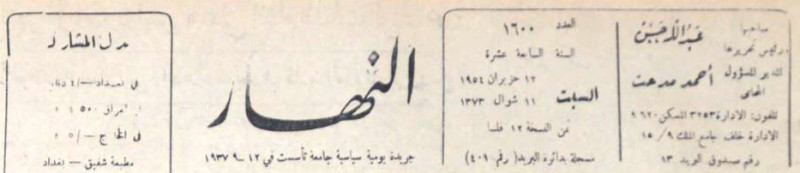 صاحبها
ورئيس تحريرها
عبد الله حسن
المدير المسؤول
المحامي
أحمد مدحت
تلفون: الادارة ٣٢٥٣ المسكن ٩٦٢٠
الادارة خلف جامع الملك ٩/ ١٥
رقم صندوق البريد ١٣
العدد ١٦٠٠
السنة السابعة عشرة
السبت
١٢ حزيران ١٩٥٤
١١ شوال ١٣٧٣
ثمن النسخة ١٢ فلسا
مسجلة بدائرة البريد (رقم ٤٠٩)
النهار
جريدة يومية سياسية جامعة تأسست في ١٢ - ٩ - ١٩٣٧
بدل المشاركة
في بغداد
في الخارج
مطبعة شفيق - بغداد